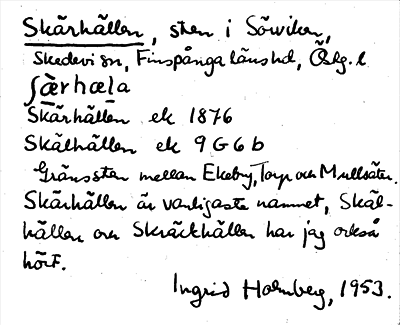 Skärhällen, sten i Sörviken,
Skedevi sn, Finspånga länshd, Ög. l
ʃæ̀rhæla
Skärhällen ek 1876
Skälhällen ek 9G6b
Gränssten mellan Ekeby, Torp och Mullsäter.
Skärhällen är vanligaste namnet, Skäl-
hällen och Skräckhällen har jag också
hört.
Ingrid Holmberg, 1953.